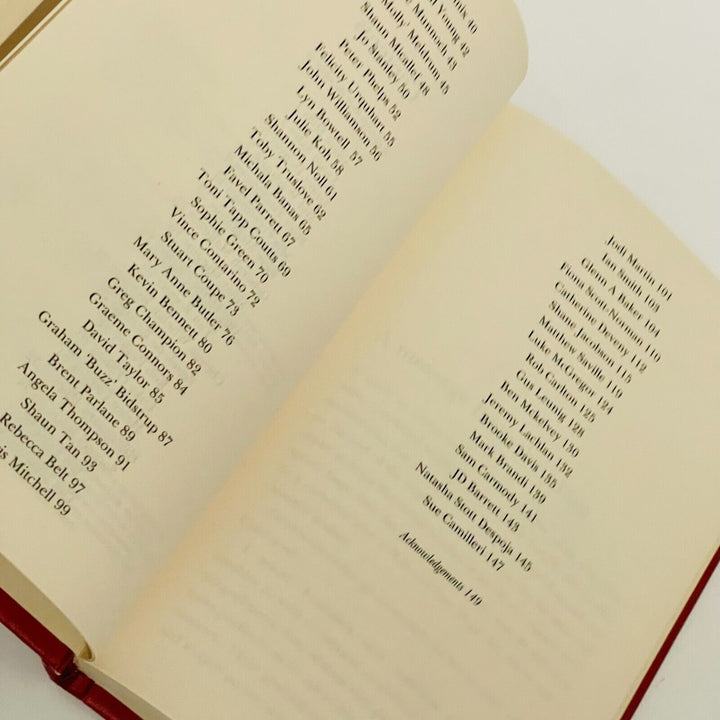 40
Young 42
Murnoch 43
'Molly' Meldrum 45
Shaun Micallef 48
Jo Stanley 50
Peter Phelps 52
Felicity Urquhart 55
John Williamson 56
Lyn Bowtell 57
Julie Koh 58
Shannon Noll 61
Toby Truslove 62
Michala Banas 65
Favel Parrett 67
Toni Tapp Coutts 69
Sophie Green 70
Vince Contarino 72
Stuart Coupe 73
Mary Anne Butler 76
Kevin Bennett 80
Greg Champion 82
Graeme Connors 84
David Taylor 85
Graham 'Buzz' Bidstrup 87
Brent Parlane 89
Angela Thompson 91
Shaun Tan 93
Rebecca Belt 97
is Mitchell 99
Jodi Martin 101
Ian Smith 103
Glenn A Baker 104
Fiona Scott-Norman 110
Catherine Deveny 112
Shane Jacobson 115
Matthew Saville 119
Luke McGregor 124
Rob Carlton 125
Gus Leunig 128
Ben Mckelvey 130
Jeremy Lachlan 132
Brooke Davis 135
Mark Brandi 139
Sam Carmody 141
JD Barrett 143
Natasha Stott Despoja 145
Sue Camilleri 147
Acknowledgements 149